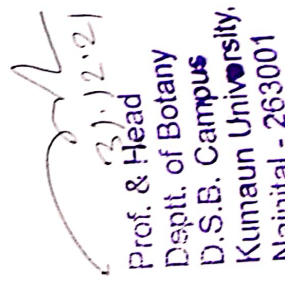 31.12.21
Prof. & Head
Deptt. of Botany
D.S.B. Campus
Kumaun University,
Nainital - 263001